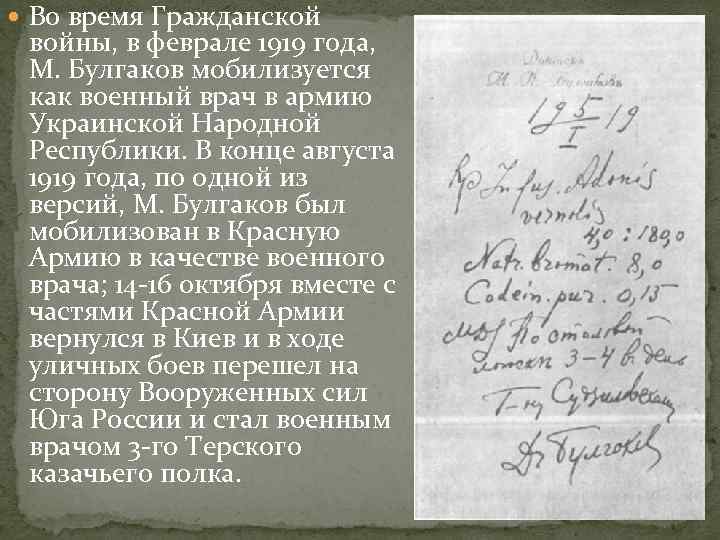 • Во время Гражданской
войны, в феврале 1919 года,
М. Булгаков мобилизуется
как военный врач в армию
Украинской Народной
Республики. В конце августа
1919 года, по одной из
версий, М. Булгаков был
мобилизован в Красную
Армию в качестве военного
врача; 14-16 октября вместе с
частями Красной Армии
вернулся в Киев и в ходе
уличных боев перешел на
сторону Вооруженных сил
Юга России и стал военным
врачом 3-го Терского
казачьего полка.
М.
19 5/I 19
Rp Infus. Adonis
vernalis
4,0 : 180,0
Natr. bromat. 8,0
Codein. pur. 0,15
MDS По столовой
ложке 3-4 в день
Г-ну Судзиловскому
Dr Булгаков